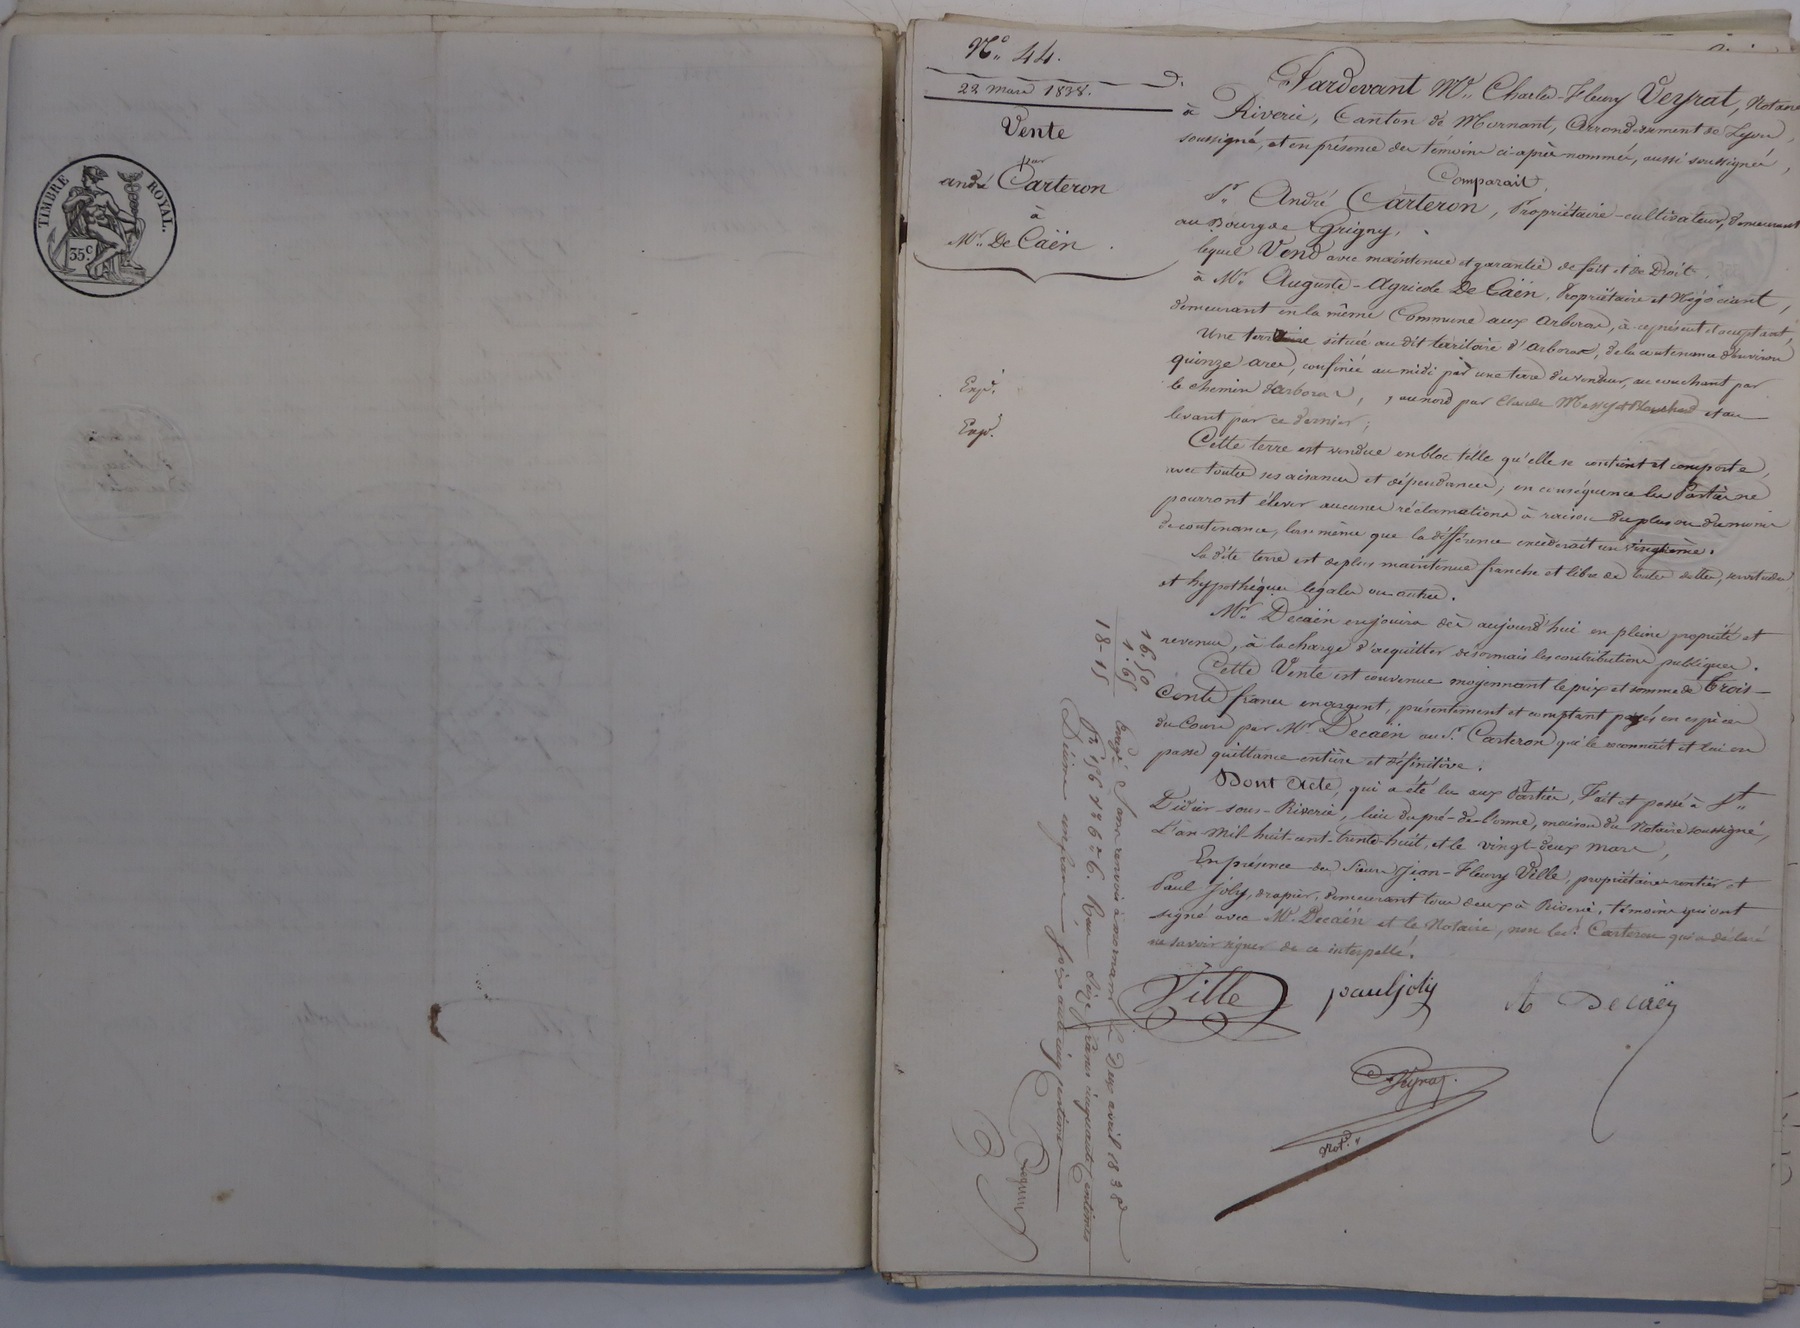 TIMBRE ROYAL.
35 c.
N.o 44.
22 mars 1838.
Vente
par
andré Carteron
à
Mr. De Caën.
Expé.
Expé.
Pardevant Me. Charles-Fleury Veyrat, Notaire
à Riverie, Canton de Mornant, Arrondissement de Lyon,
soussigné, et en présence des témoins ci-après nommés, aussi soussignés,
Comparait,
Sr. André Carteron, Propriétaire-cultivateur, demeurant
au Bourg de Grigny,
lequel Vend avec maintenue et garantie de fait et de Droit,
à Mr. Auguste-Agricole De Caën, Propriétaire et Négociant,
demeurant en la même Commune aux arboras, à ce présent et acceptant,
Une terre située au dit territoire d'arboras, de la contenance d'environ
quinze ares, confinée au midi par une terre du vendeur, au couchant par
le chemin d'arboras, , au nord par Claude et au
levant par ce dernier;
Cette terre est vendue en bloc telle qu'elle se contient et comporte,
avec toutes ses aisances et dépendances, en conséquence les Parties ne
pourront élever aucunes réclamations à raison du plus ou du moins
de contenance, lors même que la différence excéderait un vingtième.
La dite terre est de plus maintenue franche et libre de toutes dettes, servitudes
et hypothèques légales ou autres.
Mr. Decaën en jouira dès aujourd'hui en pleine propriété et
revenus, à la charge d'acquitter désormais les contributions publiques.
Cette Vente est convenue moyennant le prix et somme de Trois-
Cents francs en argent, présentement et comptant payés en espèces
du Cours par Mr. Decaën au Sr. Carteron qui le reconnaît et lui en
passe quittance entière et définitive.
Dont Acte, qui a été lu aux Parties, Fait et passé à St.
Didier-sous-Riverie, lieu du pré-de-l'orme, maison du Notaire soussigné,
L'an mil-huit-cent-trente-huit, et le vingt-deux mars,
En présence des Sieurs Jean-Fleury Ville, propriétaire-rentier et
Paul Joly, drapier, demeurant tous deux à Riverie, témoins qui ont
signé avec Mr. Decaën et le Notaire, non led. Carteron qui a déclaré
ne savoir signer de ce interpellé.
Ville paul joly A Decaën
Veyrat.
Not.
16.50
1.65
18-15
Enregé Sans renvois à mornant le Deux avril 1838
fo 196 Vo C. 6. Reçu Seize francs cinquante centimes
Décime un franc soixante cinq centimes